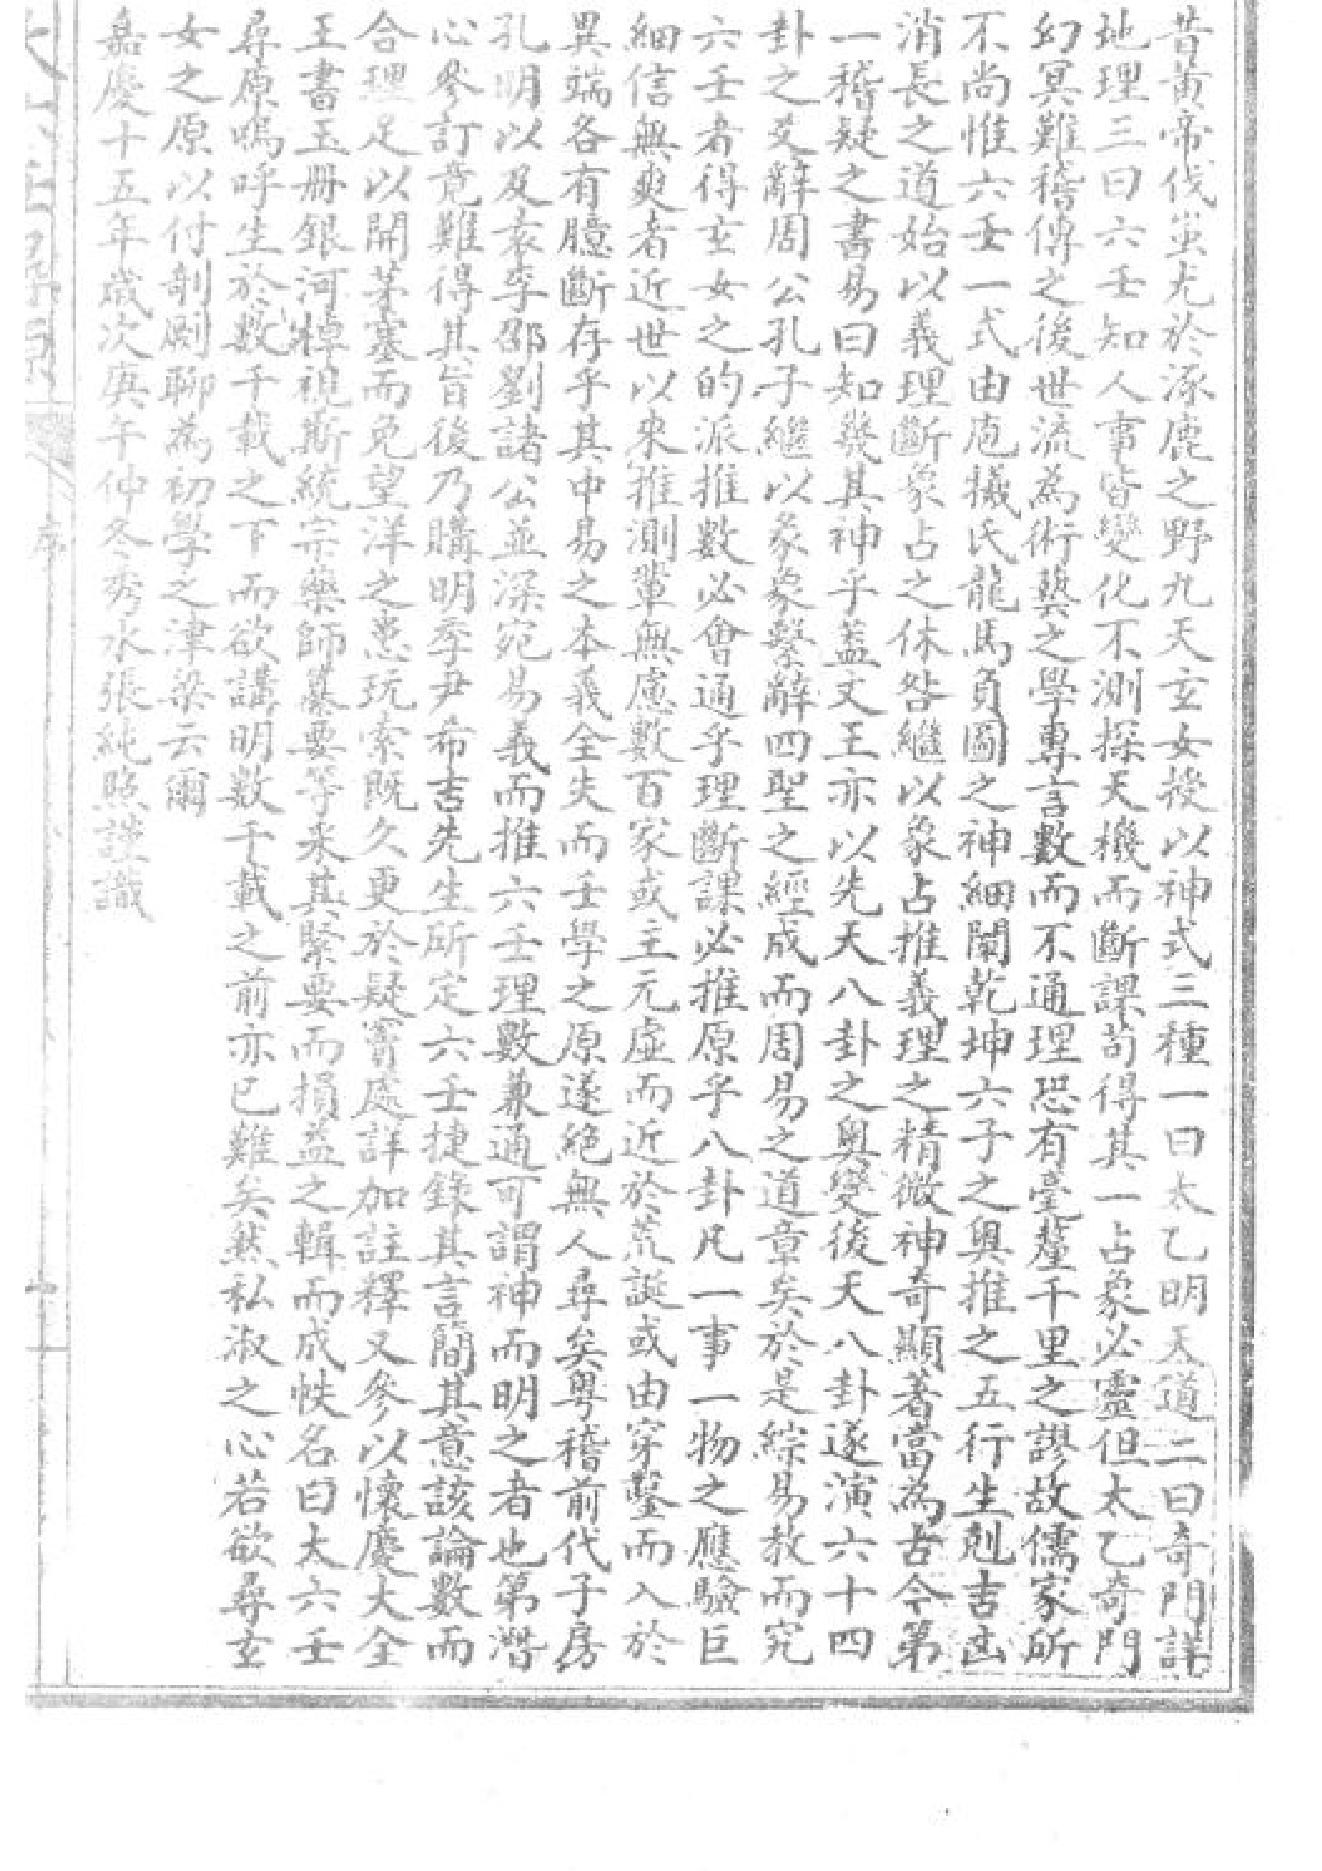 昔黃帝伐蚩尤於涿鹿之野九天玄女授以神式三種一曰太乙明天道二曰奇門詳
地理三曰六壬知人事皆變化不測探天機而斷課苟得其一占象必靈但太乙奇門
幻冥難稽傳之後世流為術藝之學專言數而不通理恐有毫釐千里之謬故儒家所
不尚惟六壬一式由庖犧氏龍馬負圖之神細闡乾坤六子之奧推之五行生剋吉凶
消長之道始以義理斷象占之休咎繼以象占推義理之精微神奇顯著當為古今第
一稽疑之書易曰知幾其神乎蓋文王亦以先天八卦之奧變後天八卦遂演六十四
卦之爻辭周公孔子繼以彖象繫辭四聖之經成而周易之道章矣於是綜易教而究
六壬者得玄女之的派推數必會通乎理斷課必推原乎八卦凡一事一物之應驗巨
細信無爽者近世以來推測輩無慮數百家或主元虛而近於荒誕或由穿鑿而入於
異端各有臆斷存乎其中易之本義全失而壬學之原遂絕無人尋矣粵稽前代子房
孔明以及袁李邵劉諸公並深宛易義而推六壬理數兼通可謂神而明之者也第潛
心參訂竟難得其旨後乃購明季尹希吉先生所定六壬捷錄其言簡其意該論數而
合理足以開茅塞而免望洋之患玩索既久更於疑竇處詳加註釋又參以懷慶大全
王書玉冊銀河棹視斯統宗藥師纂要等來其緊要而損益之輯而成帙名曰大六壬
尋原嗚呼生於數千載之下而欲講明數千載之前亦已難矣然私淑之心若欲尋玄
女之原以付剞劂聊為初學之津梁云爾
嘉慶十五年歲次庚午仲冬秀水張純照謹識
序